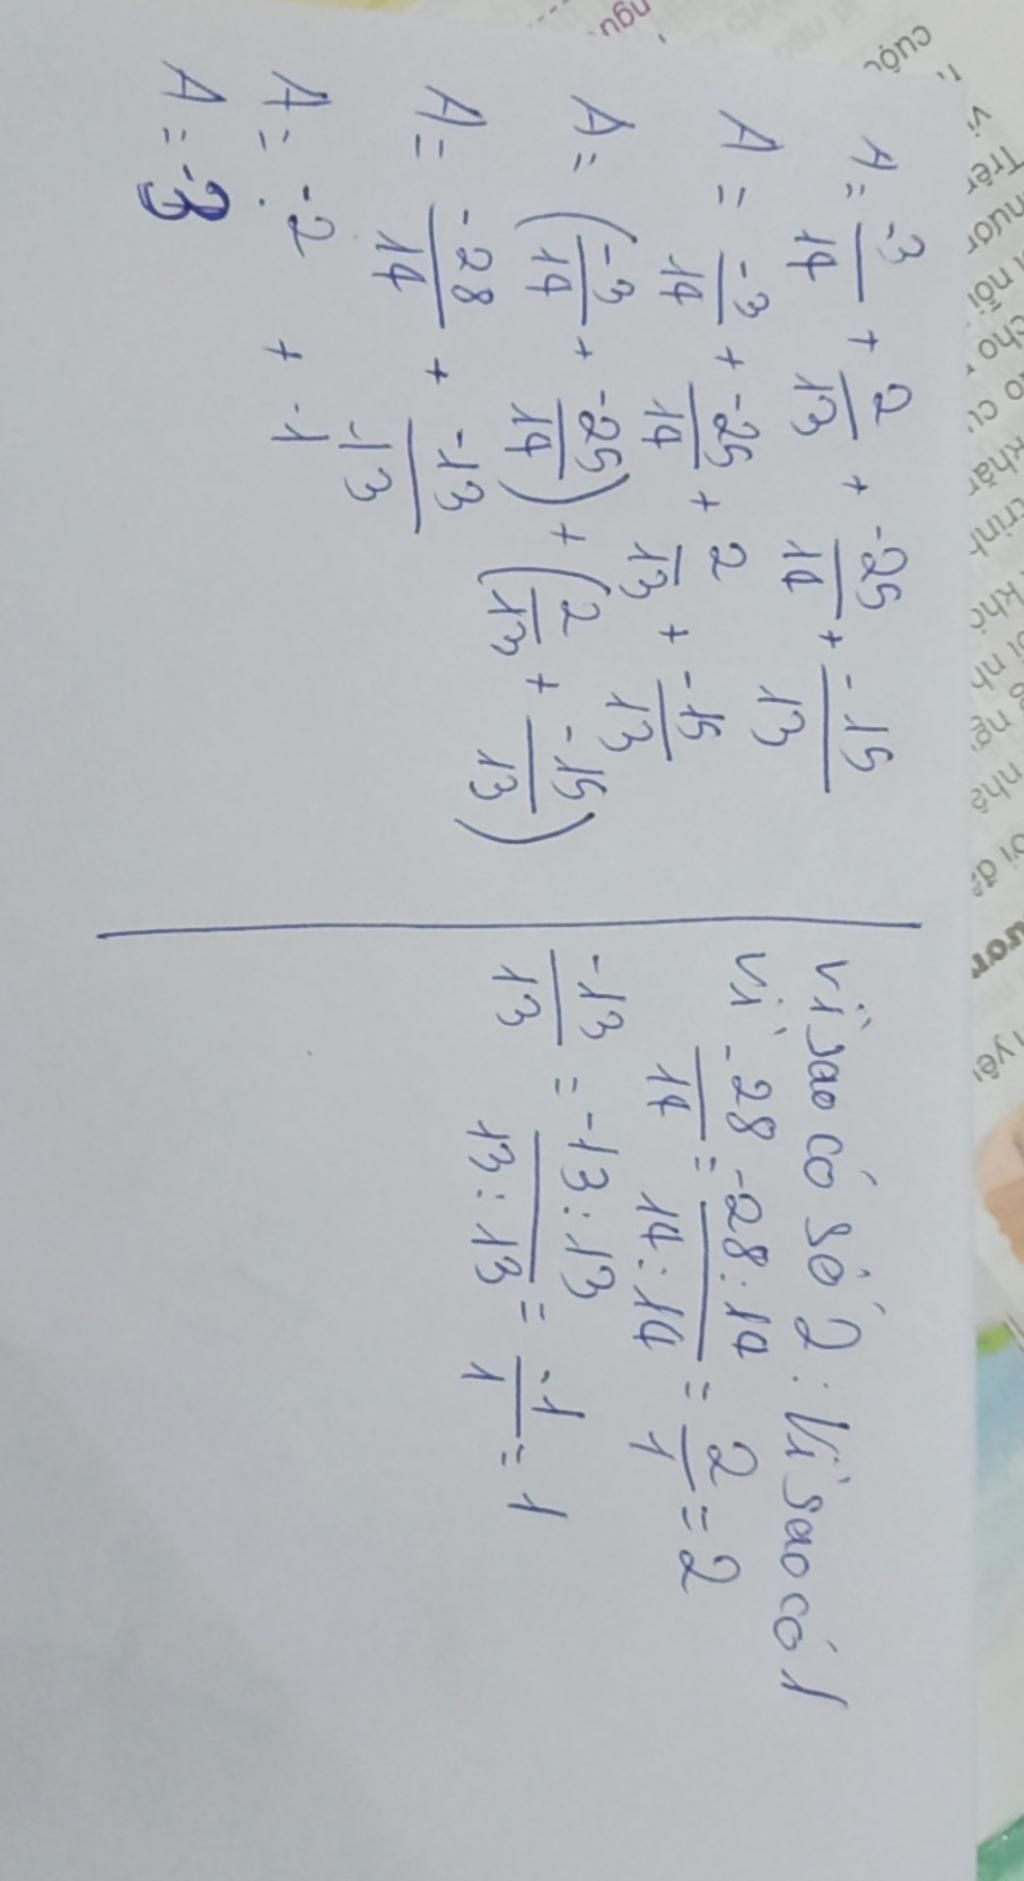 A = -3/14 + 2/13 + -25/14 + -15/13
A = -3/14 + -25/14 + 2/13 + -15/13
A = (-3/14 + -25/14) + (2/13 + -15/13)
A = -28/14 + -13/-13
A = -2 + -1
A = -3
Vì sao có số 2 : Vì sao có 1
Vì -28/14 = -28:14/14:14 = 2/1 = 2
-13/13 = -13:13/13:13 = -1/1 = 1
cuộc
Trên
nối
cho
khăn
trình